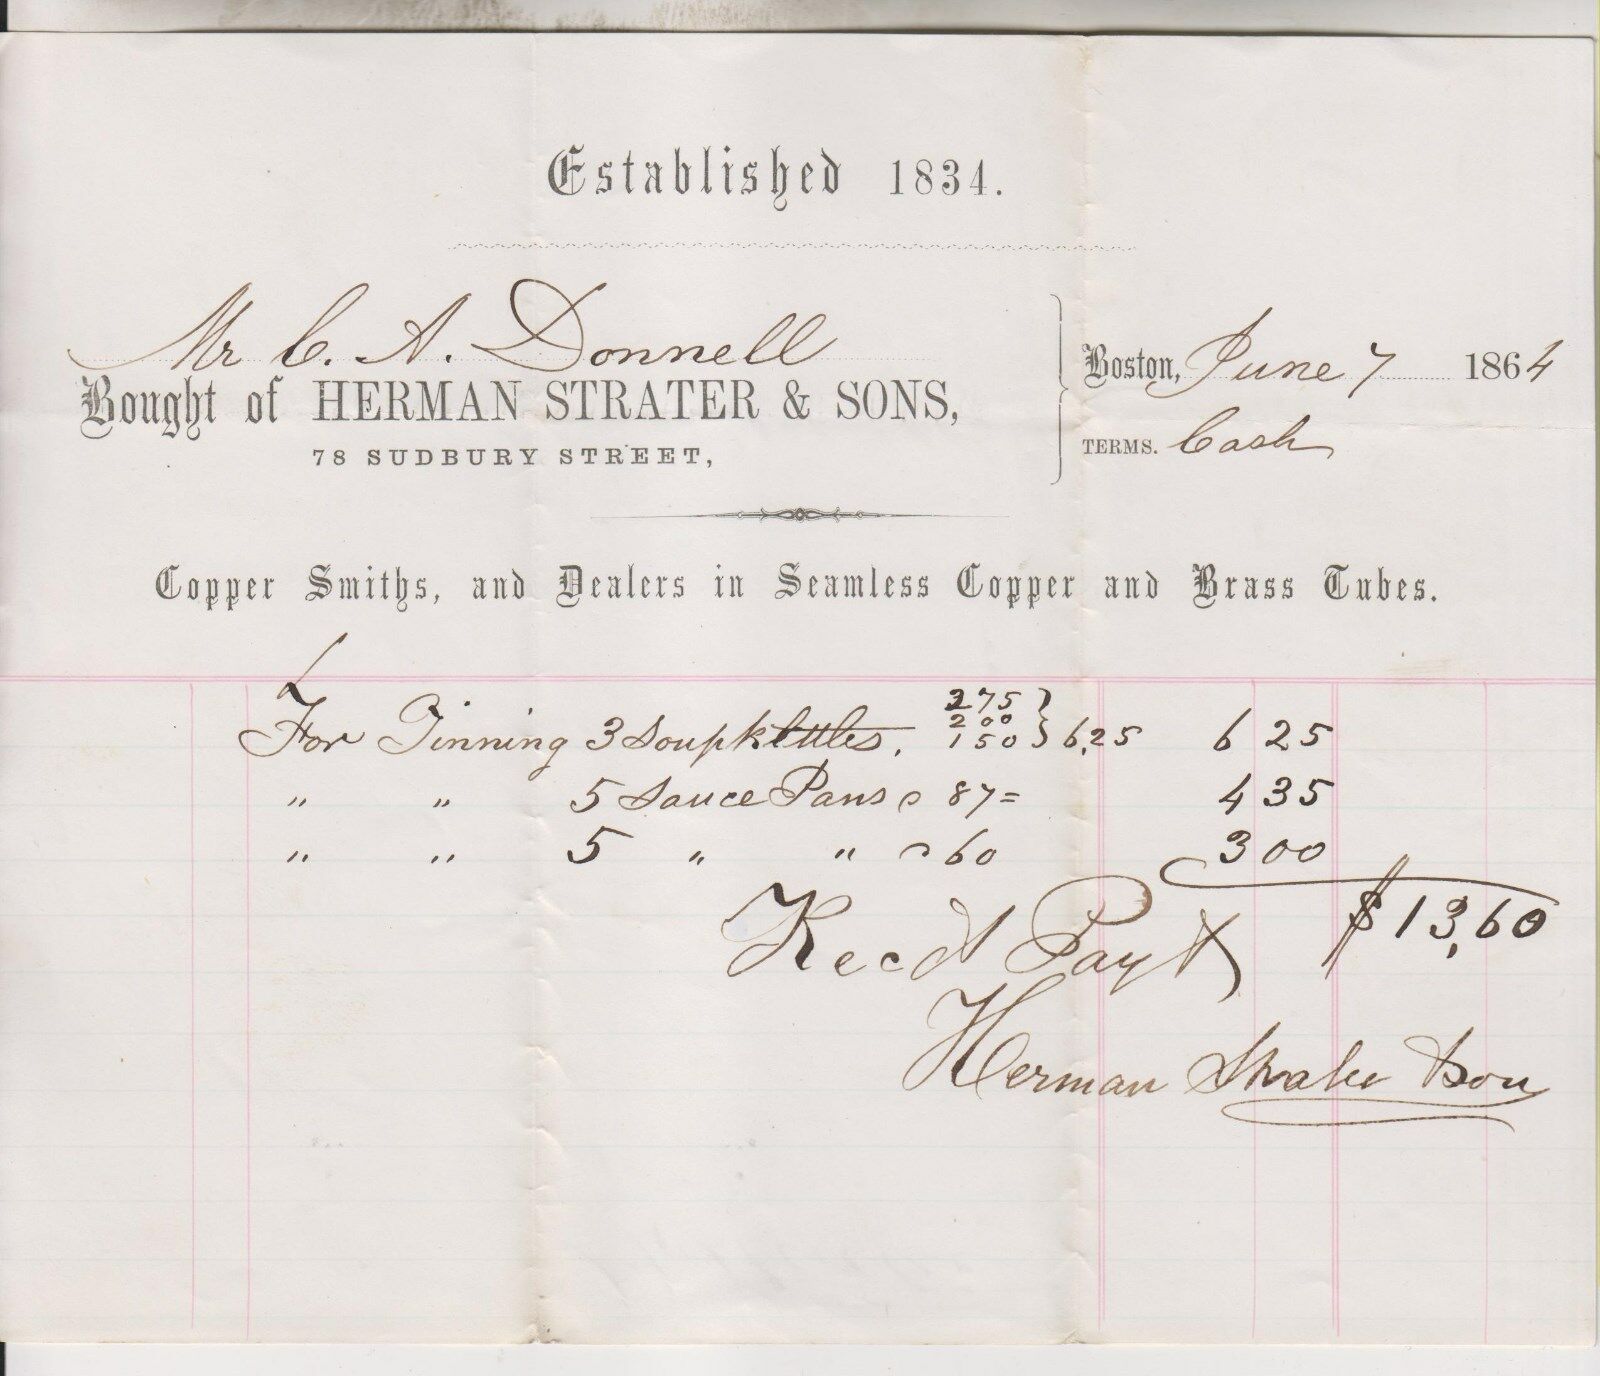 Established 1834.
Mr C. A. Donnell
Bought of HERMAN STRATER & SONS,
78 SUDBURY STREET,
Boston, June 7 1864
TERMS. Cash
Copper Smiths, and Dealers in Seamless Copper and Brass Tubes.
For Tinning 3 Soupkettles. 275 200 150 } 6,25 6 25
" " 5 Sauce Pans 87= 4 35
" " 5 " " 60 3 00
$13,60
Recd Payt
Herman Strater & Son